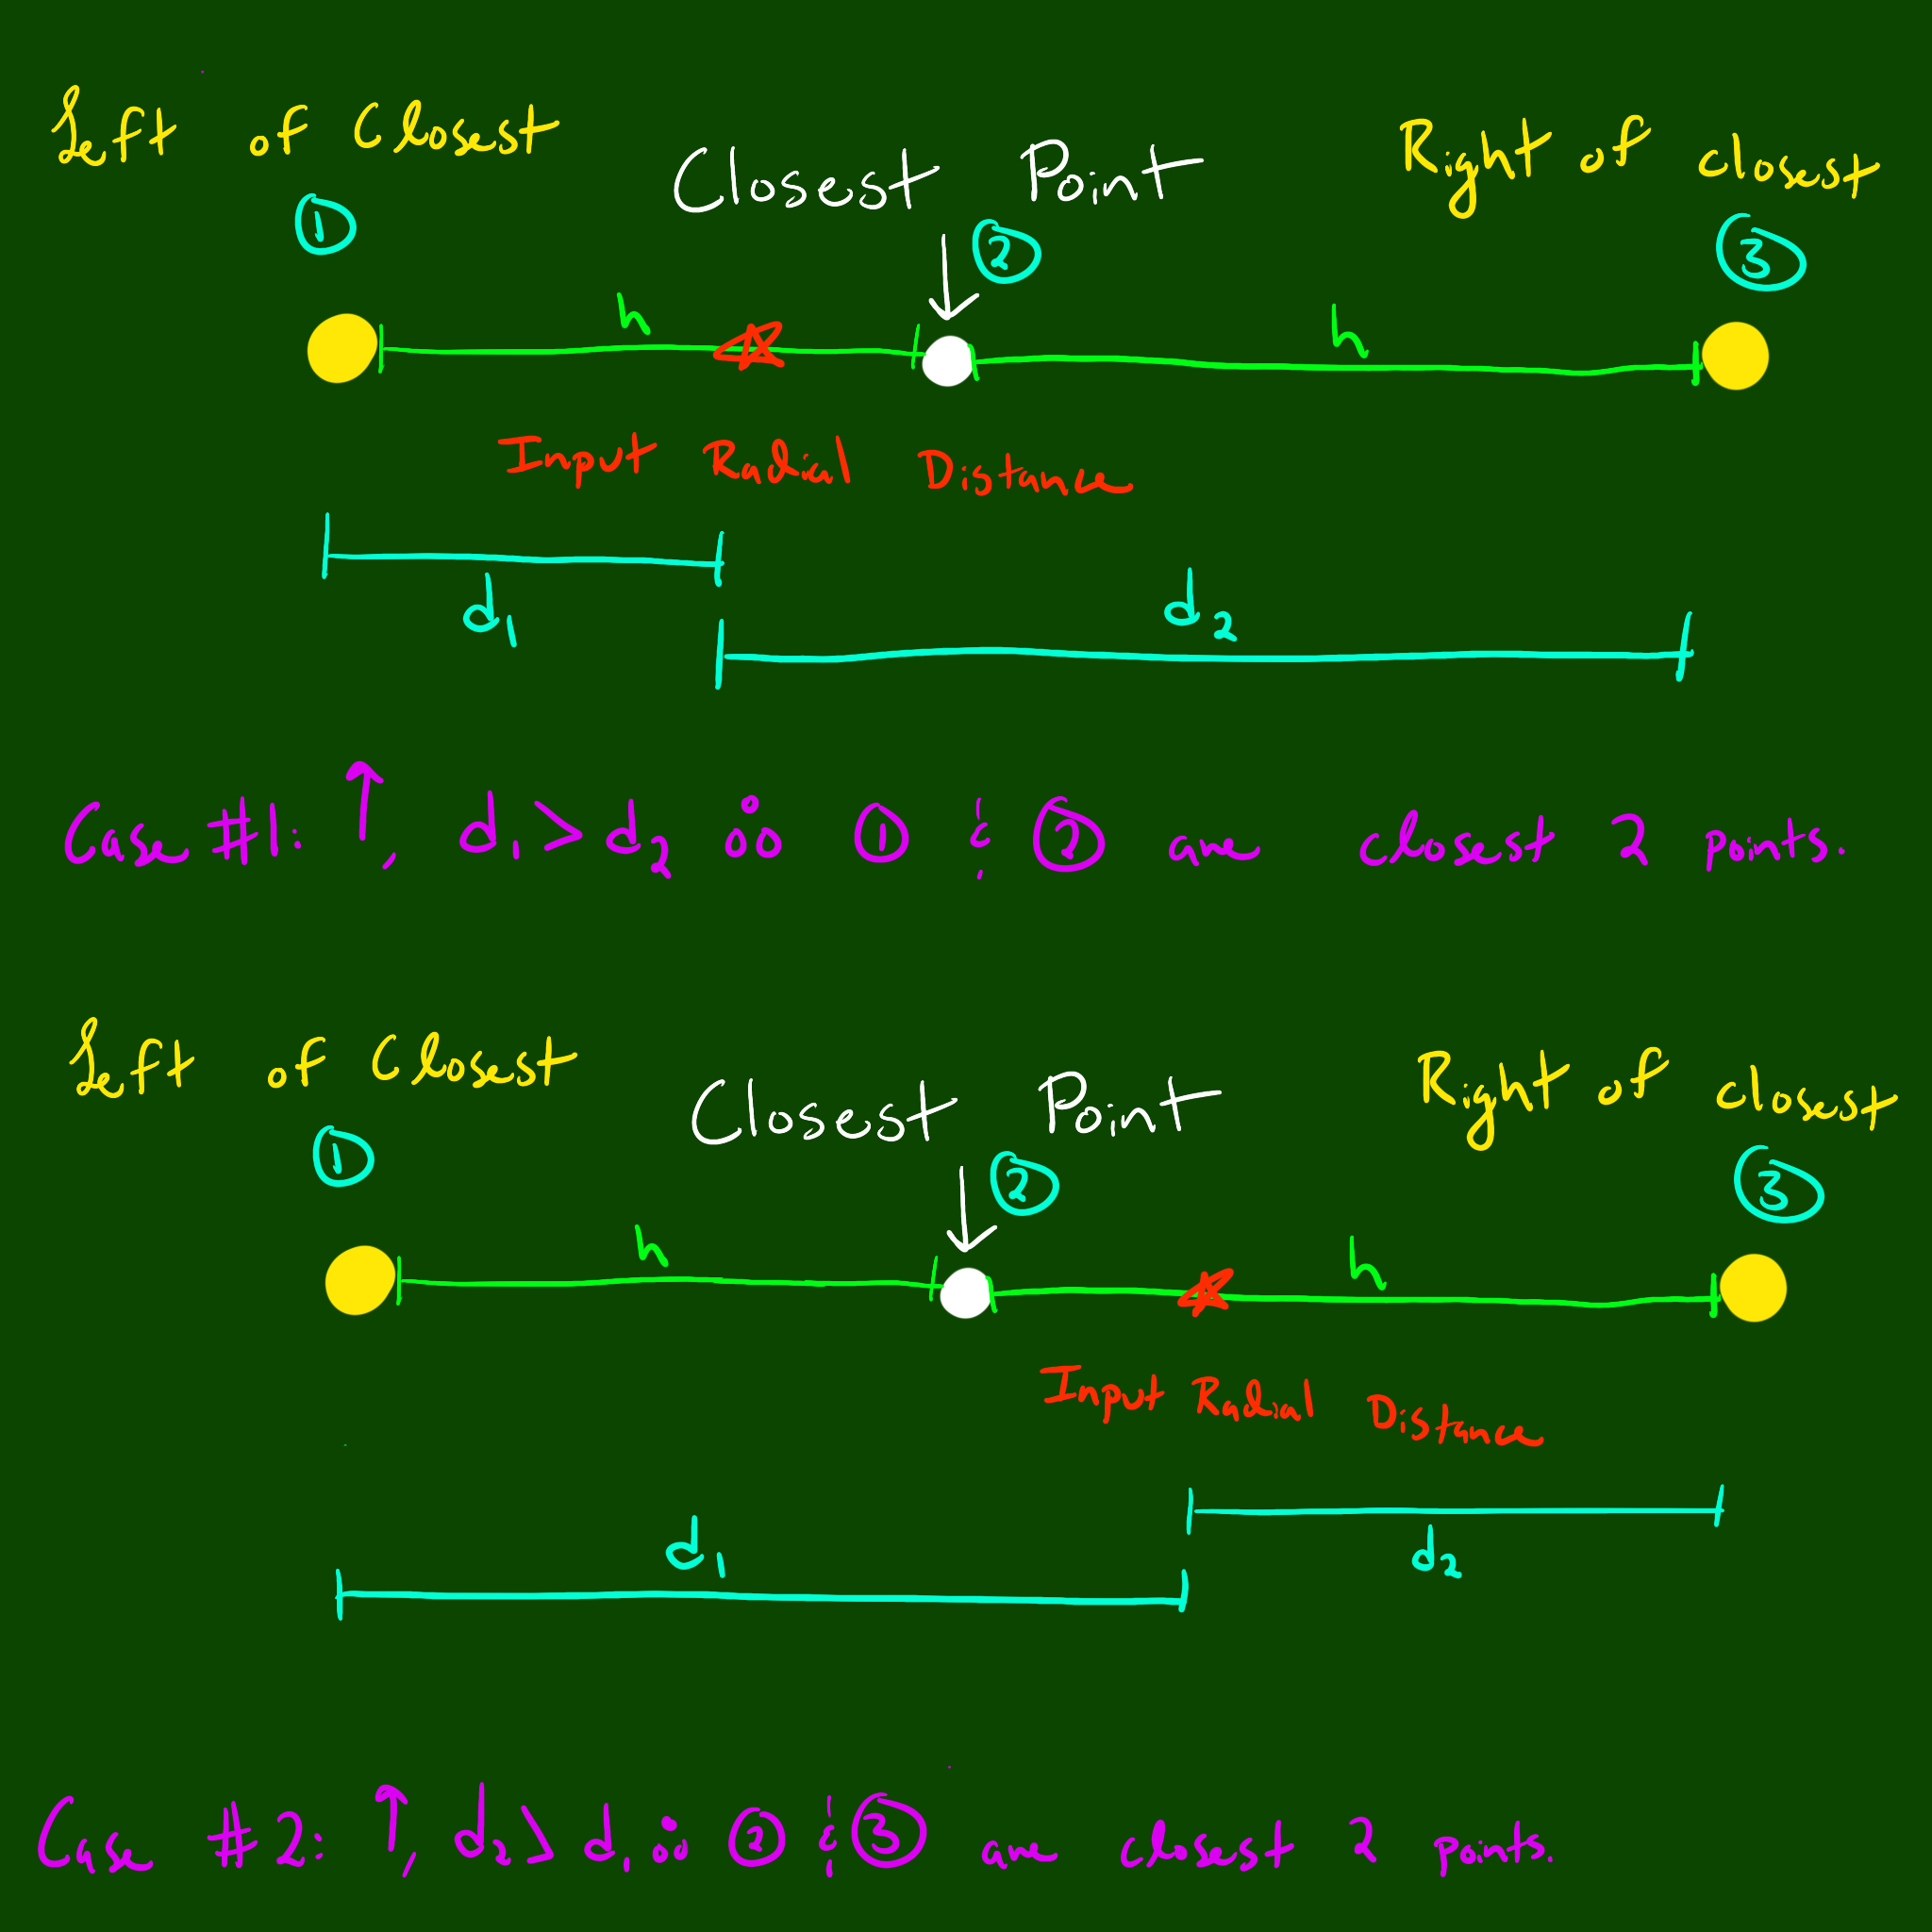 Left of Closest
Closest Point
Right of closest
① ② ③
h h
Input Radial Distance
d₁
d₂
Case #1: ↑, d₁ > d₂ ∴ ① & ② are closest 2 points.
Left of Closest
Closest Point
Right of closest
① ② ③
h h
Input Radial Distance
d₁
d₂
Case #2: ↑, d₂ > d₁ ∴ ② & ③ are closest 2 points.